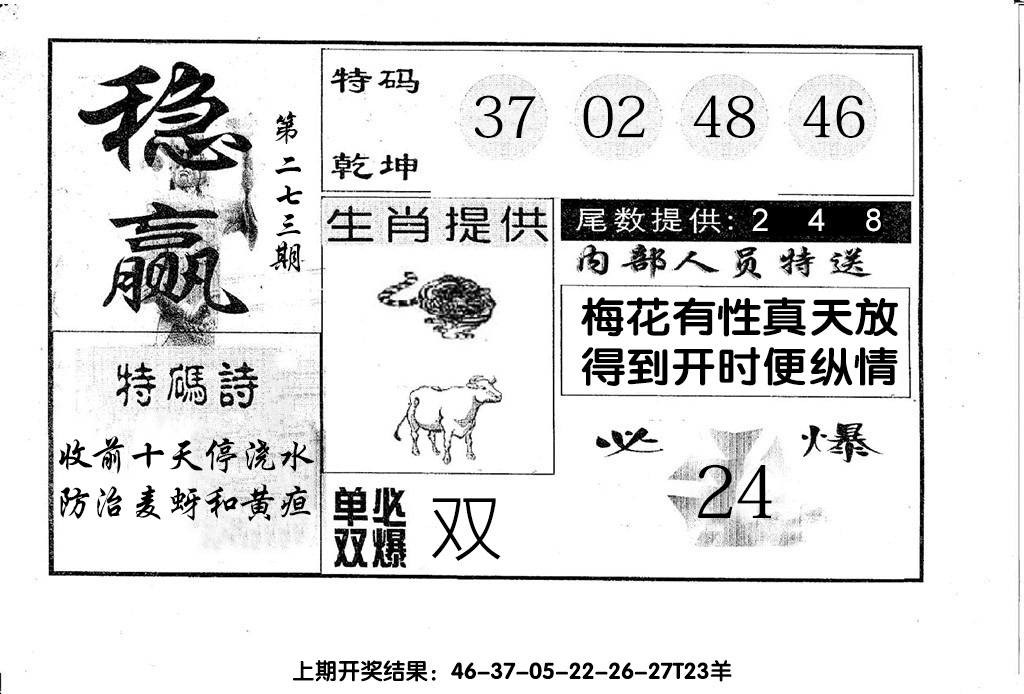 稳赢
第二七三期
特码
乾坤
37 02 48 46
生肖提供
尾数提供: 2 4 8
内部人员特送
梅花有性真天放
得到开时便纵情
特碼詩
收前十天停浇水
防治麦蚜和黄疸
必爆
24
单双必爆
双
上期开奖结果：46-37-05-22-26-27T23羊